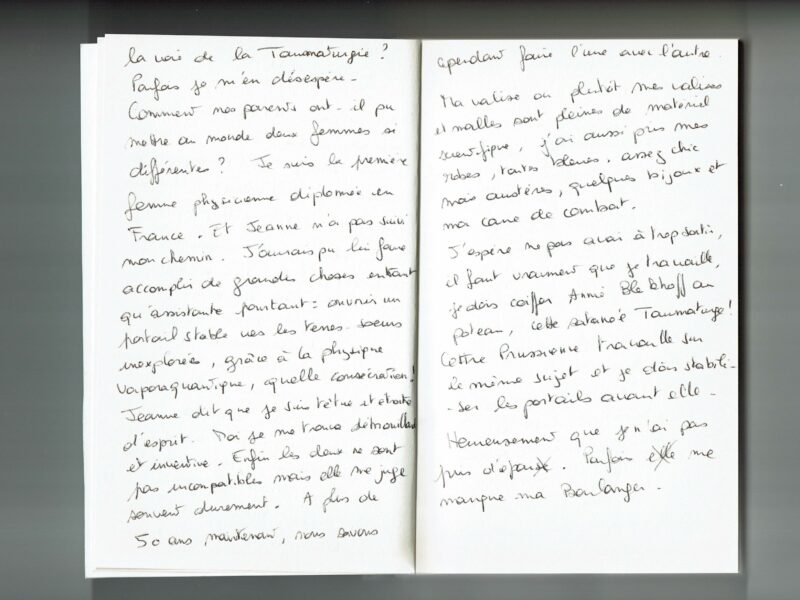 la voie de la Taumaturgie ?
Parfois je m'en désespère -
Comment nos parents ont-il pu
mettre au monde deux femmes si
différentes ? Je suis la première
femme physicienne diplomée en
France. Et Jeanne n'a pas suivi
mon chemin. J'aurais pu lui faire
accomplir de grandes choses en tant
qu'assistante pourtant : ouvrir un
portail stable vers les terres-soeurs
inexplorées, grâce à la physique
vaporaquantique, quelle consécration !
Jeanne dit que je suis têtue et étroite
d'esprit. Moi je me trouve débrouillarde
et inventive. Enfin les deux ne sont
pas incompatibles mais elle me juge
souvent durement. A plus de
50 ans maintenant, nous savons
cependant faire l'une avec l'autre.
Ma valise ou plutôt mes valises
et malles sont pleines de matériel
scientifique, j'ai aussi pris mes
robes, toutes bleues, assez chic
mais austères, quelques bijoux et
ma cane de combat.
J'espère ne pas avoir à trop sortir,
il faut vraiment que je travaille,
je dois coiffer Annie au
poteau, cette satanée Taumaturge !
Cette Prussienne travaille sur
le même sujet et je dois stabili-
-ser les portails avant elle -
Heureusement que je n'ai pas
pris d'époux. Parfois elle me
manque ma Boulanger.